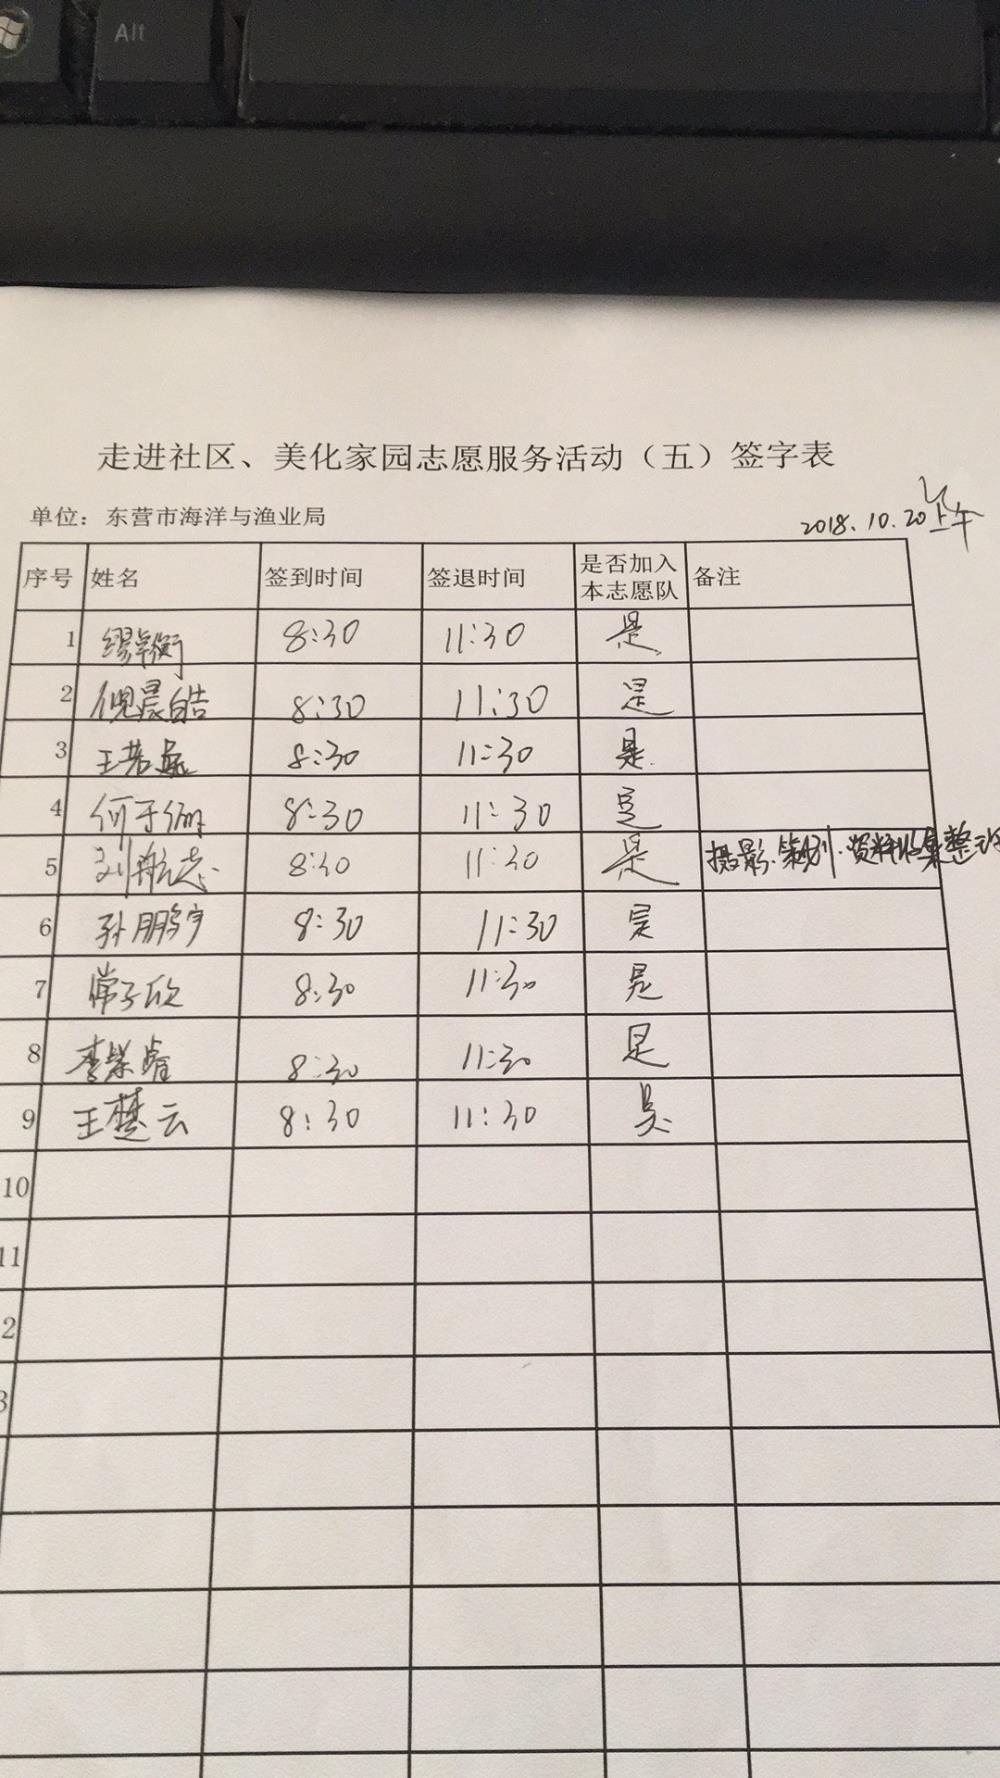 Alt
走进社区、美化家园志愿服务活动（五）签字表
单位：东营市海洋与渔业局 2018.10.20上午
序号 姓名 签到时间 签退时间 是否加入本志愿队 备注
1 缪卓衡 8:30 11:30 是
2 倪晨皓 8:30 11:30 是
3 王若 8:30 11:30 是
4 何于 8:30 11:30 是
5 刘航志 8:30 11:30 是 摄影.策划.资料收集整
6 孙鹏宇 8:30 11:30 是
7 常子欣 8:30 11:30 是
8 李荣睿 8:30 11:30 是
9 王楚云 8:30 11:30 是
10
11
2
3